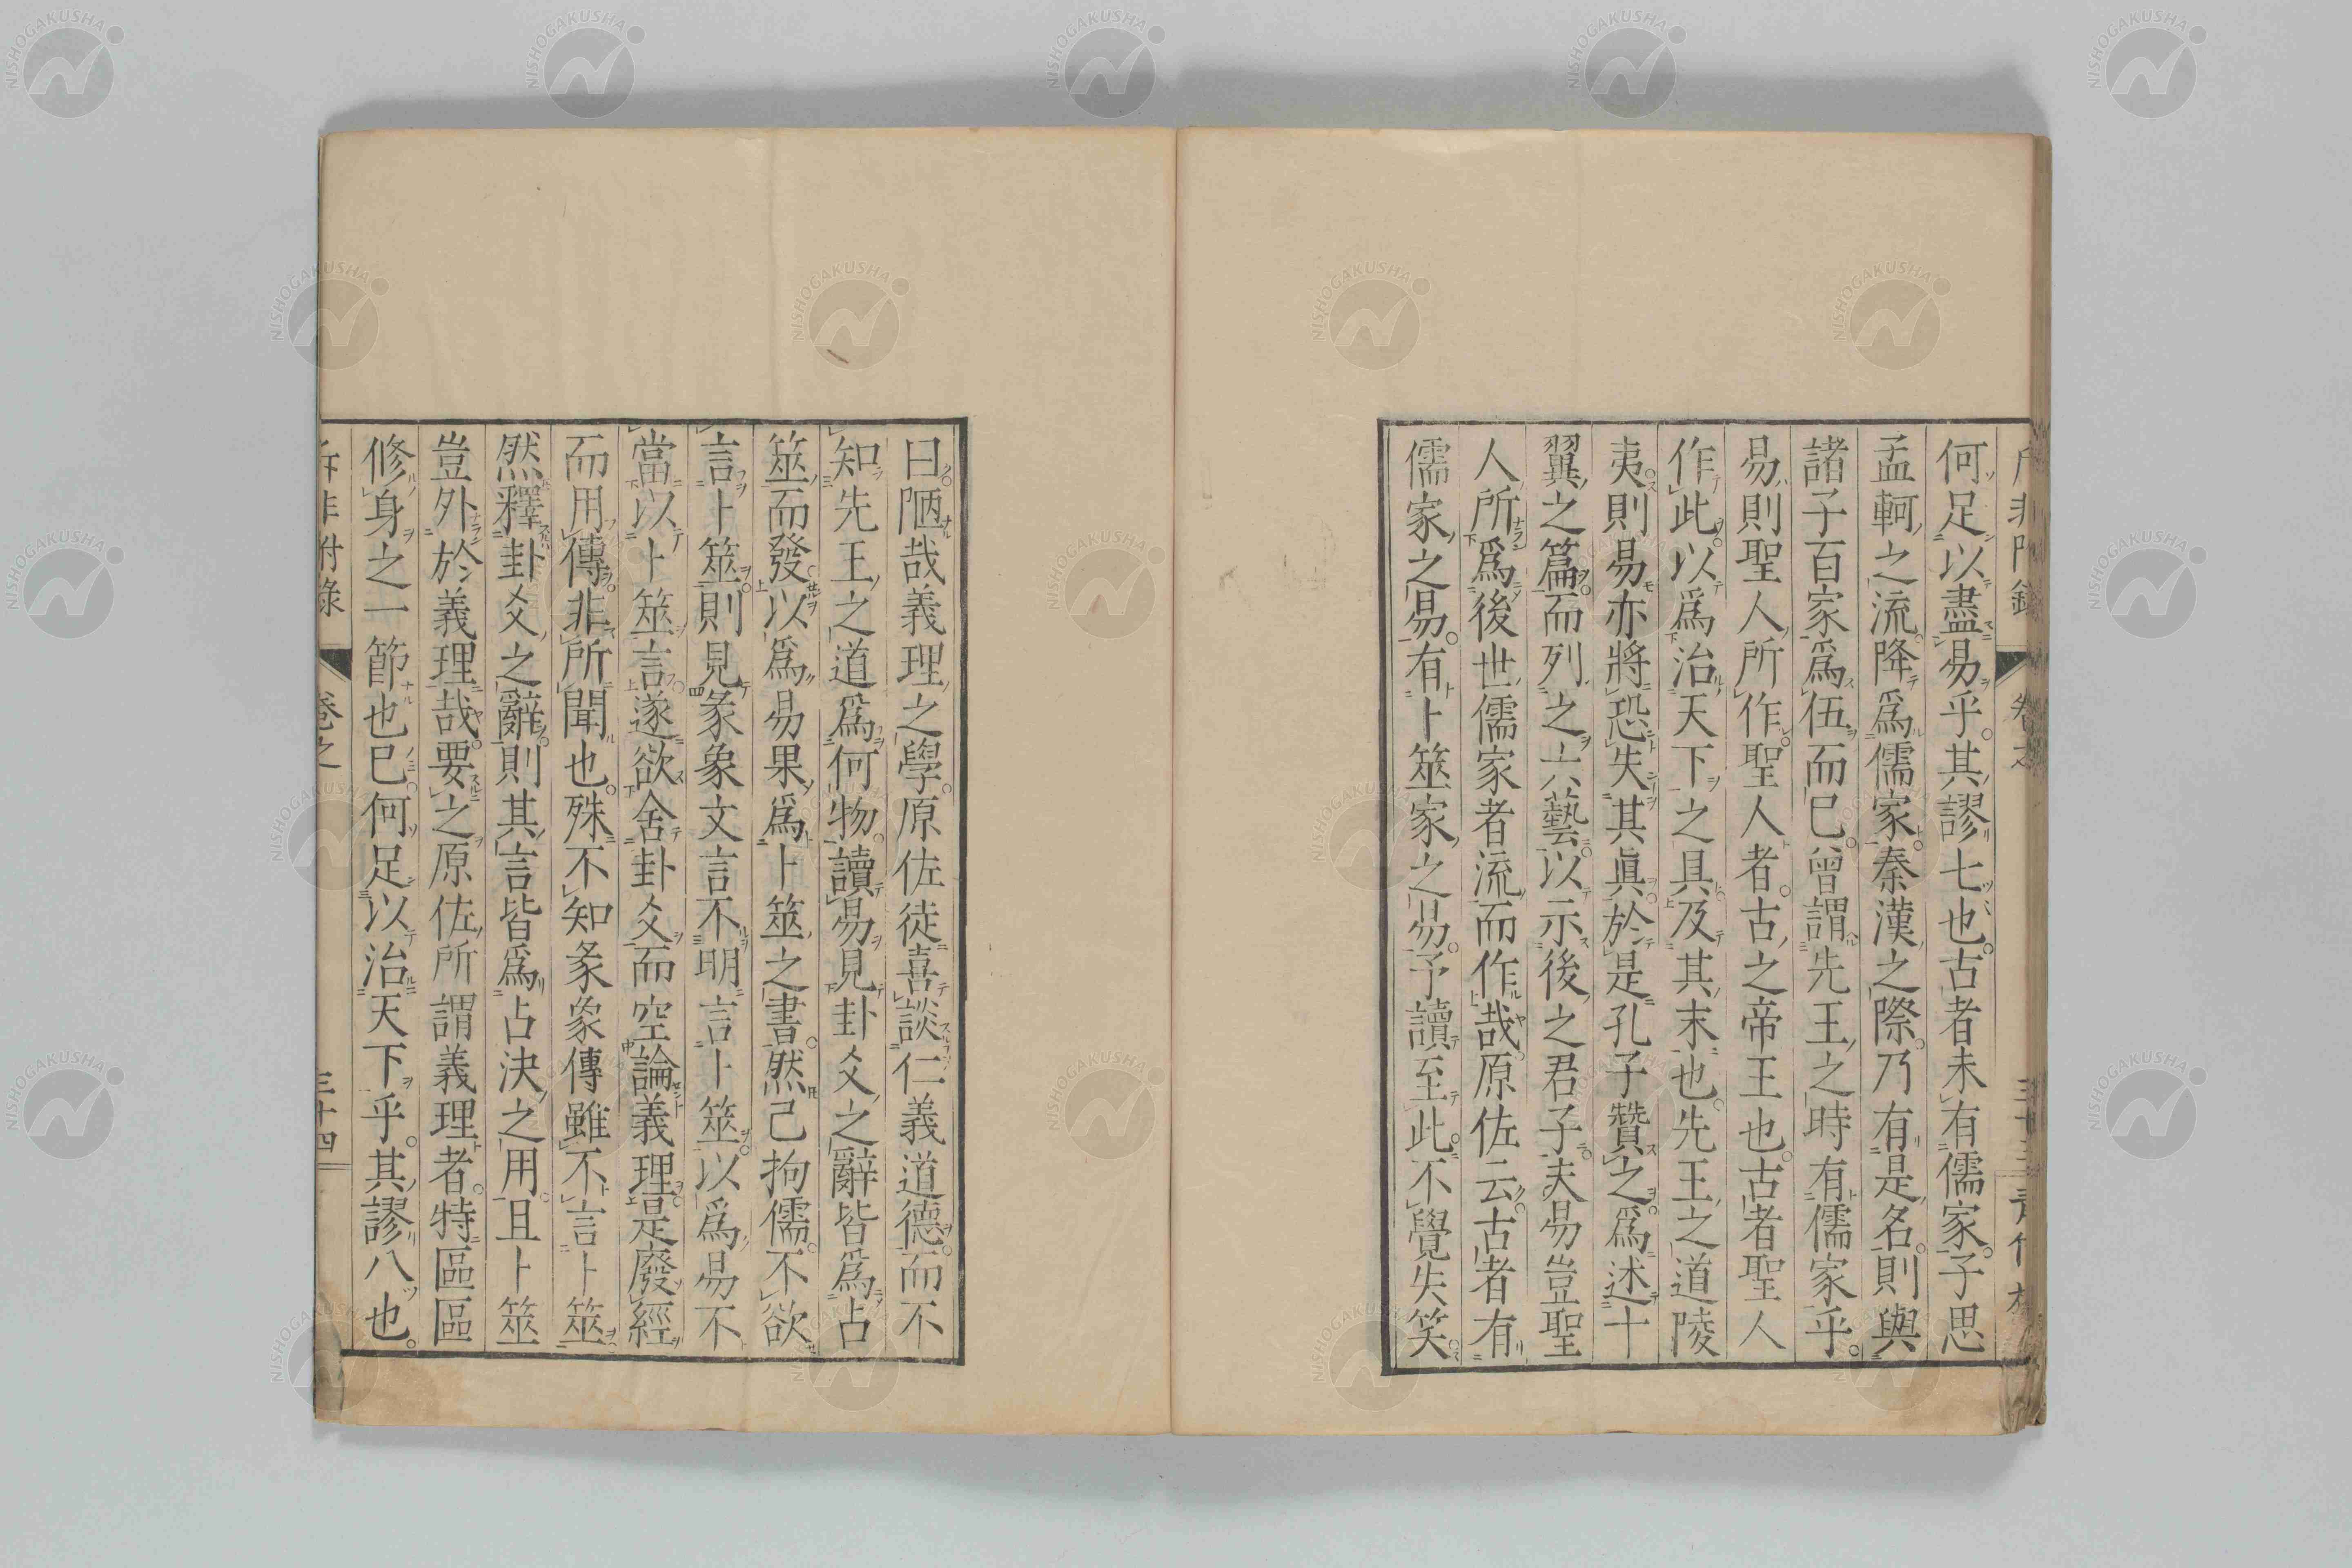 何足以盡易乎。其謬七也。古者未有儒家。子思
孟軻之流。降爲儒家。秦漢之際。乃有是名。則與
諸子百家爲伍而已。曾謂先王之時有儒家乎。
易則聖人所作。聖人者。古之帝王也。古者聖人
作此以爲治天下之具。及其末也。先王之道陵
夷。則易亦將恐失其眞。於是孔子贊之。爲述十
翼之篇。而列之六藝。以示後之君子。夫易豈聖
人所爲後世儒家者流而作哉。原佐云。古者有
儒家之易。有卜筮家之易。予讀至此。不覺失笑。
曰。陋哉義理之學。原佐徒喜談仁義道德。而不
知先王之道爲何物。讀易見卦爻之辭皆爲占
筮而發。以爲易果爲卜筮之書。然己拘儒。不欲
言卜筮。則見彖象文言不明言卜筮。以爲易不
當以卜筮言。遂欲舍卦爻而空論義理。是廢經
而用傳。非所聞也。殊不知彖象傳雖不言卜筮。
然釋卦爻之辭。則其言皆爲占決之用。且卜筮
豈外於義理哉。要之原佐所謂義理者。特區區
修身之一節也已。何足以治天下乎。其謬八也。
斥非附錄
卷之
三十四